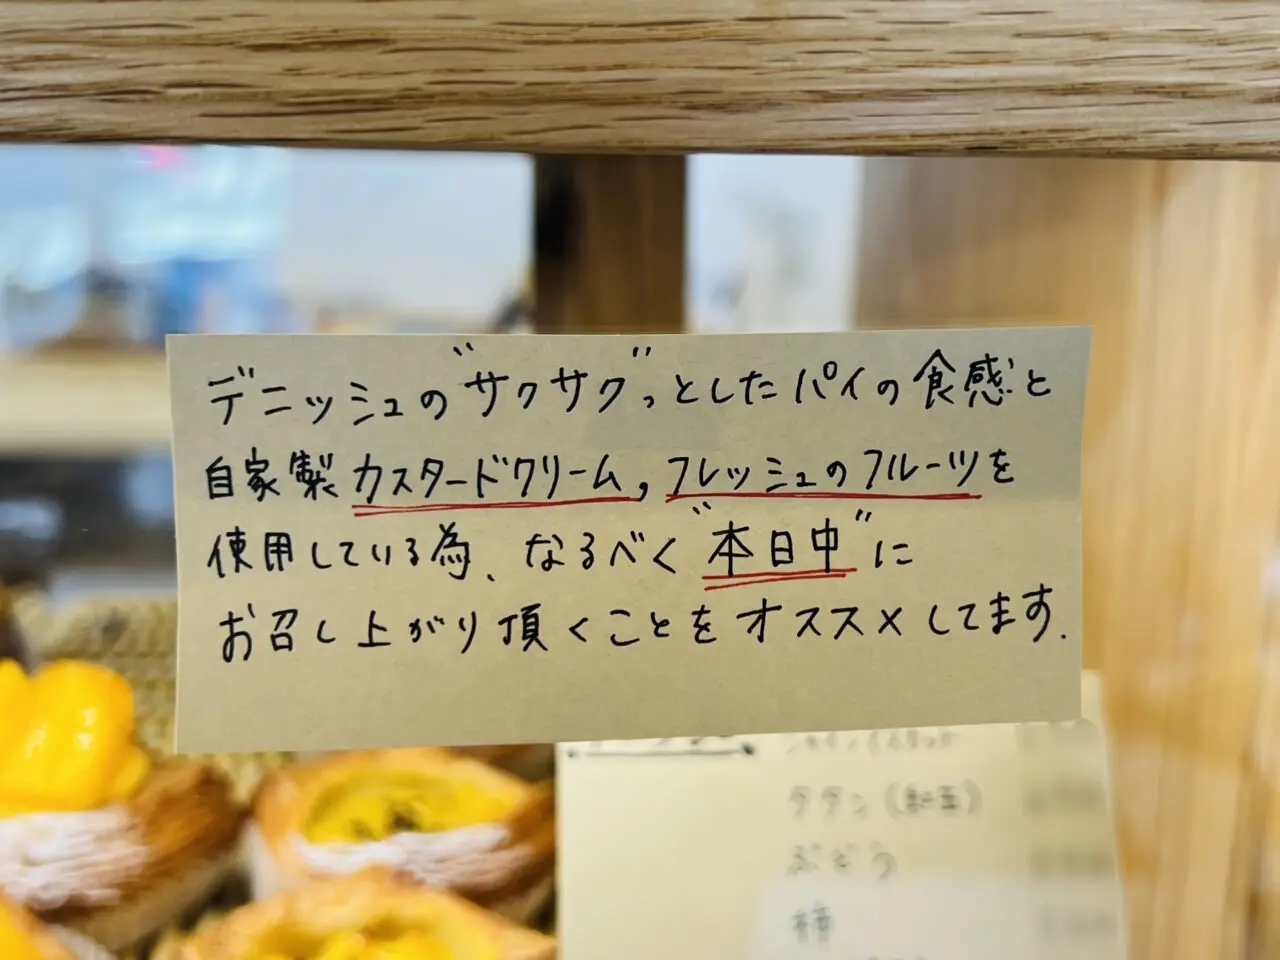 デニッシュの〝サクサク〟っとしたパイの食感と
自家製カスタードクリーム，フレッシュのフルーツを
使用している為、なるべく〝本日中〟に
お召し上がり頂くことをオススメしてます.
タタン(紅玉)
ぶどう
柿